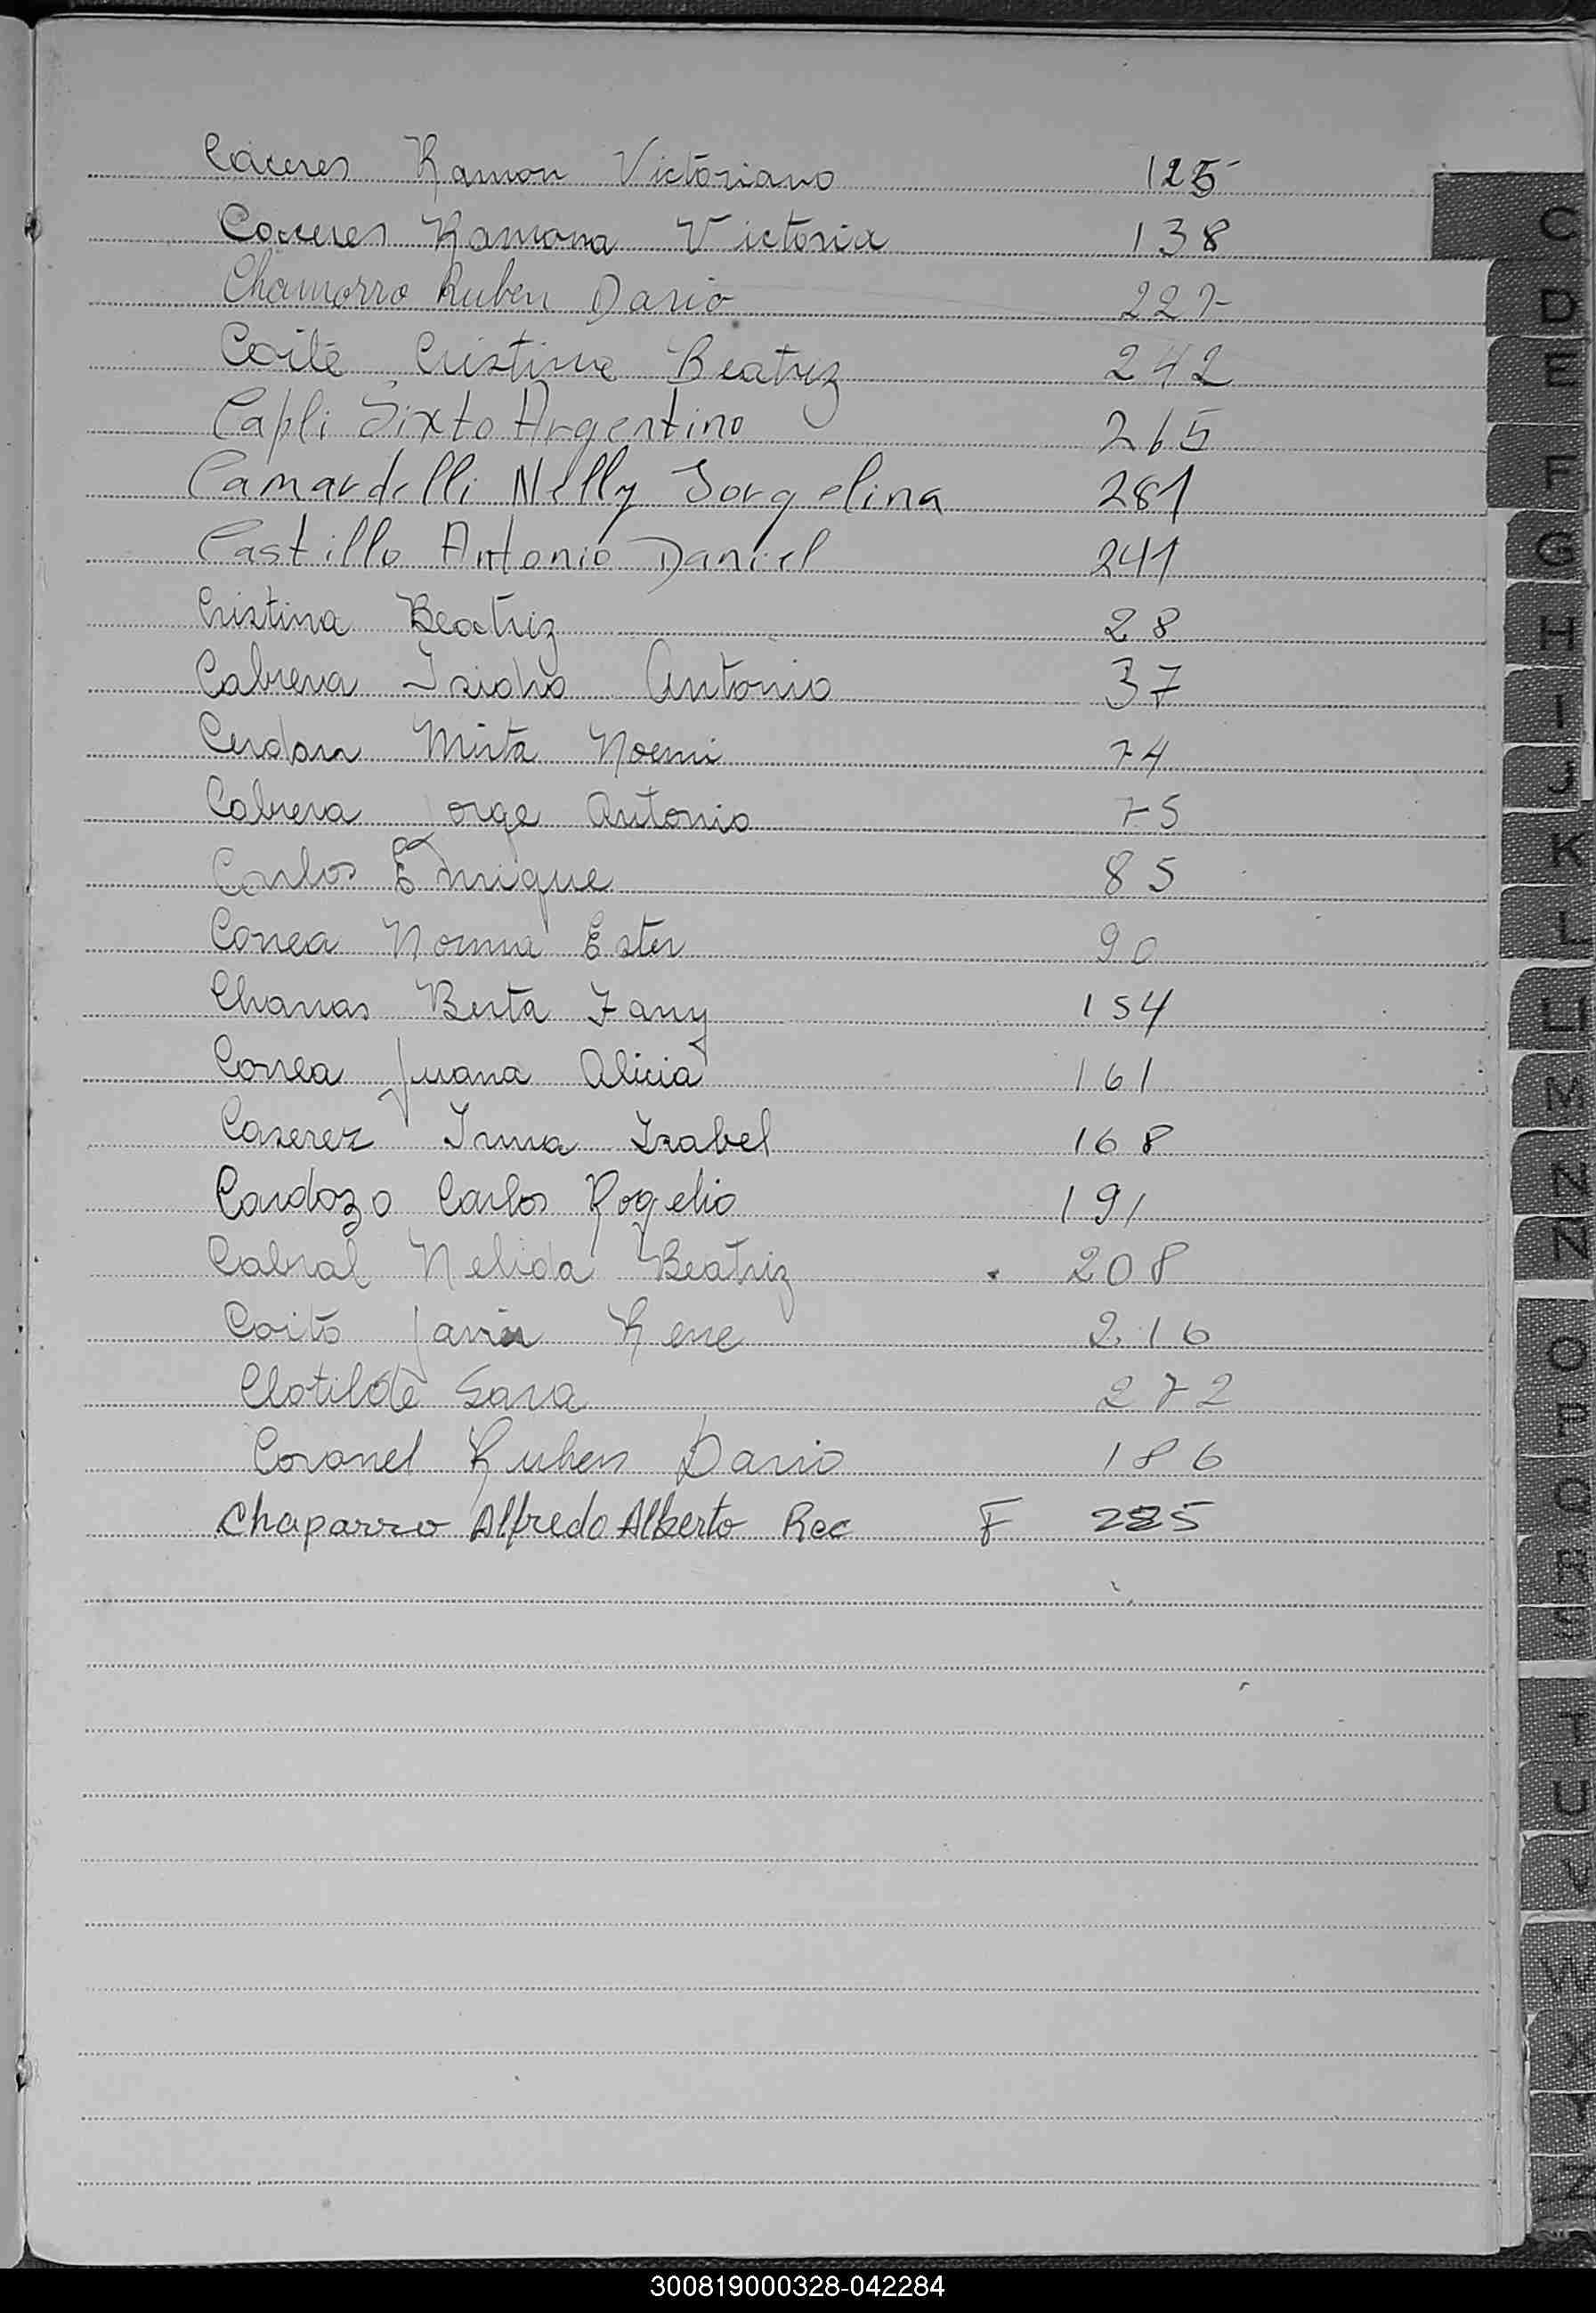 Caceres Ramon Victoriano 125
Caceres Ramona Victoria 138
Chamorro Ruben Dario 227
Coite Cristina Beatriz 242
Capli Sixto Argentino 265
Camardelli Nelly Jorgelina 281
Castillo Antonio Daniel 241
Cristina Beatriz 28
Cabrera Isidro Antonio 37
Cerdan Mirta Noemi 74
Cabrera Jorge Antonio 75
Carlos Enrique 85
Correa Norma Ester 90
Charras Berta Fany 154
Correa Juana Alicia 161
Caserez Irma Isabel 168
Cardozo Carlos Rogelio 191
Cabral Nelida Beatriz 208
Coito Javier Rene 216
Clotilde Sara 272
Coronel Ruben Dario 186
Chaparro Alfredo Alberto Rec F 285
C
D
E
F
G
H
I
J
K
L
LL
M
N
Ñ
O
P
Q
R
S
T
U
V
W
X
Y
Z
300819000328-042284